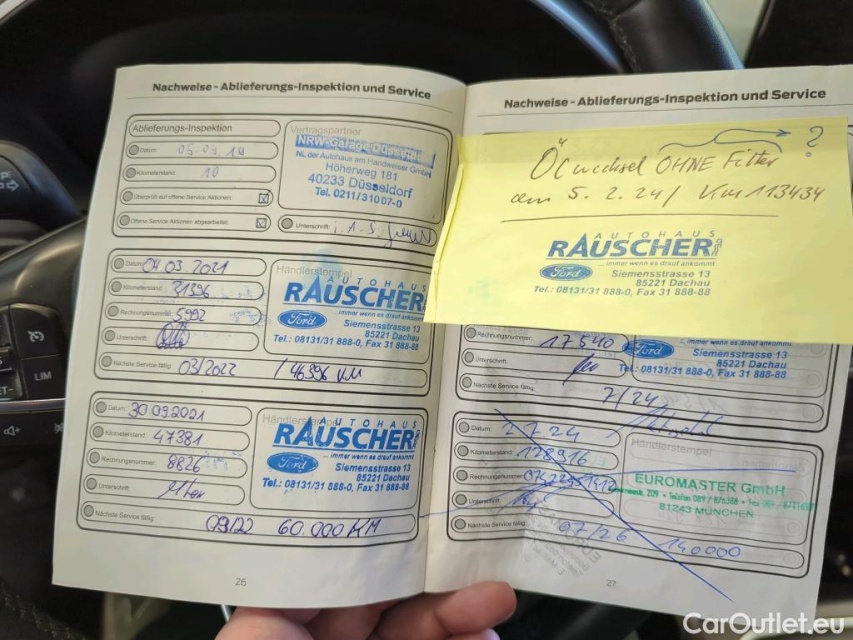 Nachweise - Ablieferungs-Inspektion und Service
Ablieferungs-Inspektion
Datum: 05.09.19
Kilometerstand: 10
Überprüft auf offene Service Aktionen:
Offene Service Aktionen abgearbeitet:
Unterschrift:
Vertragspartner
NL der Autohaus am Handweiser GmbH
Höherweg 181
40233 Düsseldorf
Tel. 0211/31007-0
Datum: 04.03.2021
Kilometerstand: 31396
Rechnungsnummer: 5992
Unterschrift:
Nächste Service fällig: 03/2022 / 46396 KM
Händlerstempel
AUTOHAUS
RÄUSCHER
... immer wenn es drauf ankommt
Ford
Siemensstrasse 13
85221 Dachau
Tel.: 08131/31 888-0, Fax 31 888-88
Datum: 30.09.2021
Kilometerstand: 47381
Rechnungsnummer: 8826
Unterschrift:
Nächste Service fällig: 09/22 60.000 KM
Händlerstempel
AUTOHAUS
RÄUSCHER
... immer wenn es drauf ankommt
Ford
Siemensstrasse 13
85221 Dachau
Tel.: 08131/31 888-0, Fax 31 888-88
26
Nachweise - Ablieferungs-Inspektion und Service
Ölwechsel OHNE Filter ?
am 5.2.24 / Km 113434
AUTOHAUS
RÄUSCHER
... immer wenn es drauf ankommt
Ford
Siemensstrasse 13
85221 Dachau
Tel.: 08131/31 888-0, Fax 31 888-88
Rechnungsnummer: 17540
Unterschrift:
Nächste Service fällig: 7/24
... immer wenn es drauf ankommt
Ford
Siemensstrasse 13
85221 Dachau
Tel.: 08131/31 888-0, Fax 31 888-88
Datum: 2.7.24
Kilometerstand: 128916
Rechnungsnummer:
Unterschrift:
Nächste Service fällig: 07/26 140000
Händlerstempel
EUROMASTER GmbH
81243 MÜNCHEN
27
LIM
CarOutlet.eu